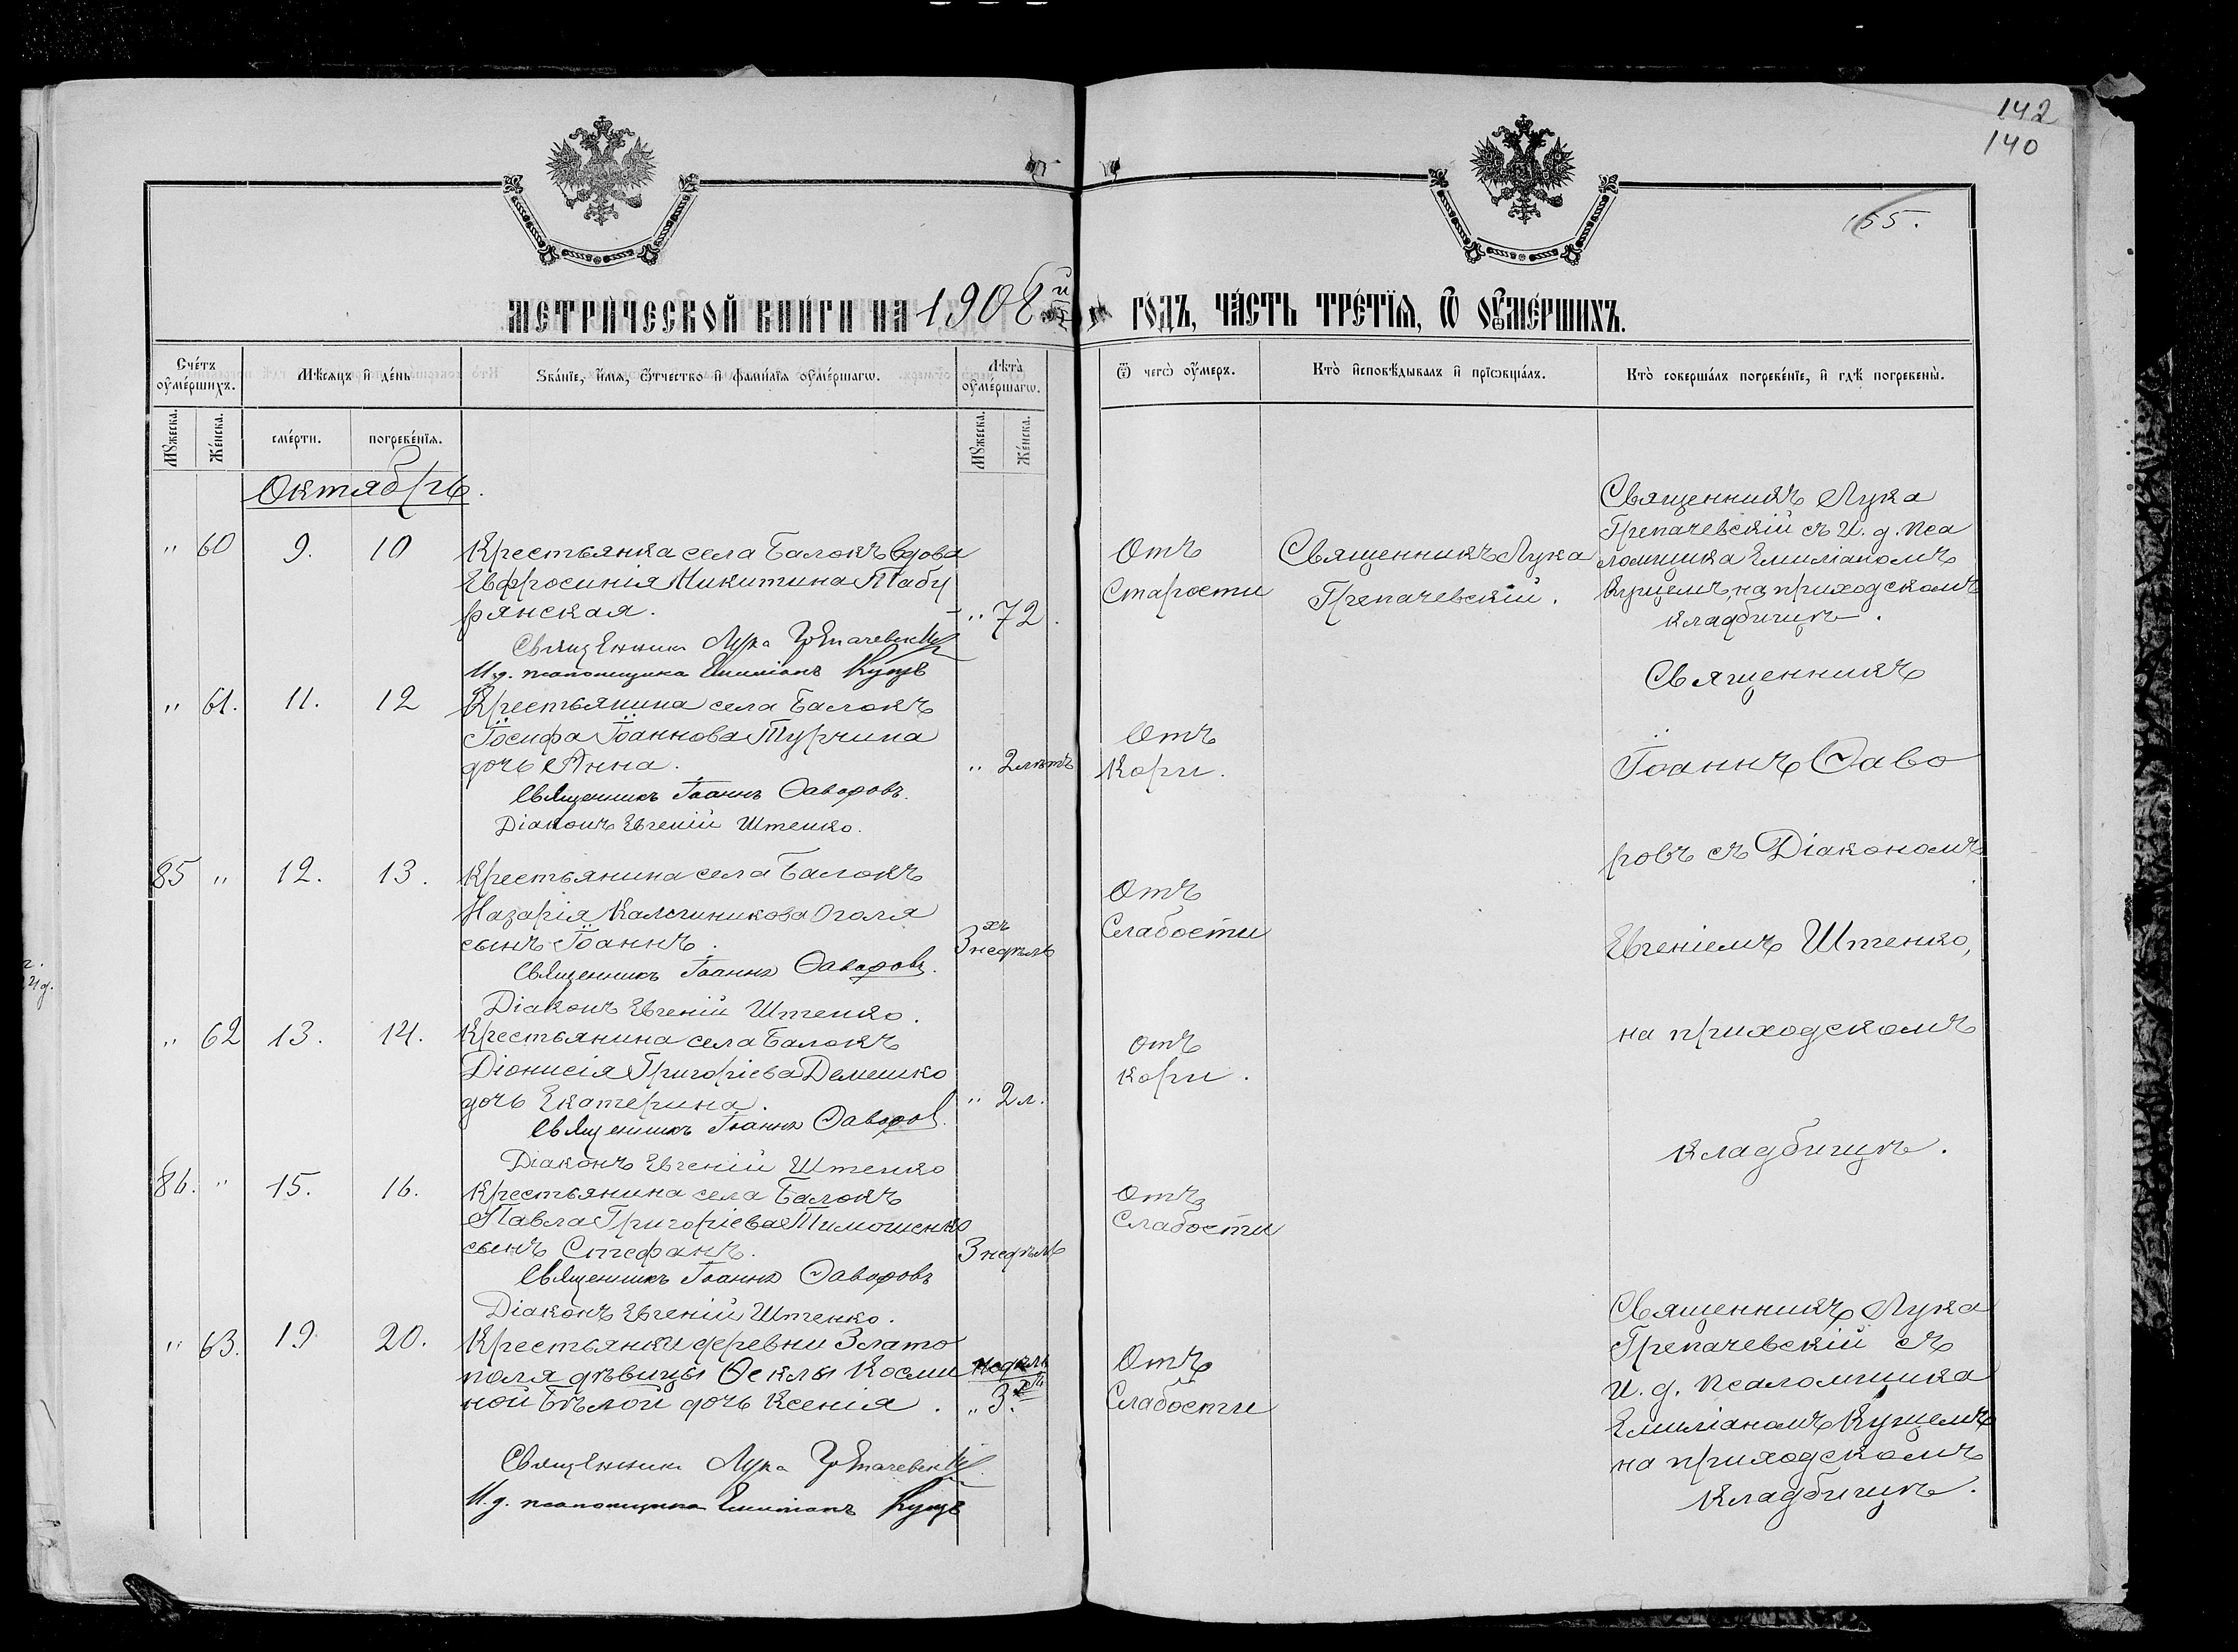 142
140
155.
МЕТРИЧЕСКОЙ КНИГИ НА 1908й ГОДЪ, ЧАСТЬ ТРЕТІЯ, Ѿ ОУМЕРШИХЪ.
Счетъ оумершихъ.
Мѣсяцъ и день
Званіе, имя, ѿтчество и фамилія оумершагѡ.
Лѣта оумершагѡ.
Ѿ чегѡ оумеръ.
Кто исповѣдывалъ и пріѡбщалъ.
Кто совершалъ погребеніе, и гдѣ погребены.
Мужеска.
Женска.
смерти.
погребенія.
Мужеска.
Женска.
Октябрь.
" 60 9. 10 Крестьянка села Балокъ вдова
Евфросинія Микитина Табу
рянская. " 72.
Священникъ Лука Грепачевскій
И.д. псаломщика Емиліанъ Куцъ
Отъ
Старости
Священникъ Лука
Грепачевскій.
Священникъ Лука
Грепачевскій съ И. д. Пса
ломщика Емиліаномъ
Куцемъ, на приходскомъ
кладбищѣ.
" 61. 11. 12 Крестьянина села Балокъ
Іосифа Іоаннова Турчина
дочь Анна. " 2 лѣтъ
Священникъ Іоаннъ Ѳаворовъ.
Діаконъ Евгеній Штенко.
Отъ
Кори.
Священникъ
Іоаннъ Ѳаво
ровъ съ Діакономъ
Евгеніемъ Штенко,
на приходскомъ
кладбищѣ.
85 " 12. 13. Крестьянина села Балокъ
Назарія Калиникова Оголя
сынъ Іоаннъ. 3хъ недѣль
Священникъ Іоаннъ Ѳаворовъ.
Діаконъ Евгеній Штенко.
Отъ
Слабости
" 62 13. 14. Крестьянина села Балокъ
Діонисія Григоріева Демешко
дочь Екатерина. " 2 л.
Священникъ Іоаннъ Ѳаворов.
Діаконъ Евгеній Штенко
Отъ
кори.
86. " 15. 16. Крестьянина села Балокъ
Павла Григоріева Тимошенко
сынъ Стефанъ. 3 недѣль
Священникъ Іоаннъ Ѳаворовъ
Діаконъ Евгеній Штенко.
Отъ
Слабости
" 63. 19 20. Крестьянки деревни Злато
поля дѣвицы Ѳеклы Косми
ной Бѣлой дочь Ксенія. недѣли
" 3.
Священникъ Лука Грепачевскій
И.д. псаломщика Емиліанъ Куцъ
Отъ
Слабости
Священникъ Лука
Грепачевскій съ
И. д. Псаломщика
Емиліаномъ Куцемъ
на приходскомъ
кладбищѣ.